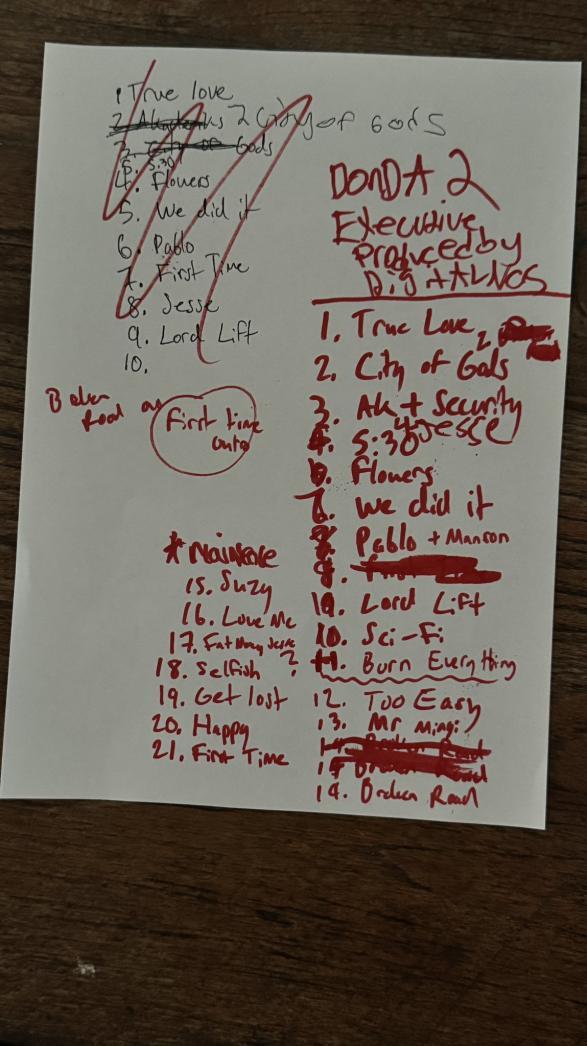 1. True love
2. 2 City of Gods
3. City of Gods
5. 5:30
4. Flowers
5. We did it
6. Pablo
7. First Time
8. Jesse
9. Lord Lift
10.
Road on
First time
onto
DONDA 2
Executive
Produced by
1. True Love 2.
2. City of Gods
3. Ak + Security
5:30 4 Jesse
6. Flowers
7. We did it
Pablo + Manson
9.
10. Lord Lift
10. Sci-Fi
11. Burn Everything
12. Too Easy
13. Mr Miagi
14.
14. Broken Road
15. Suzy
16. Love Me
17. Fat Money Jesse
18. Selfish ?
19. Get lost
20. Happy
21. First Time